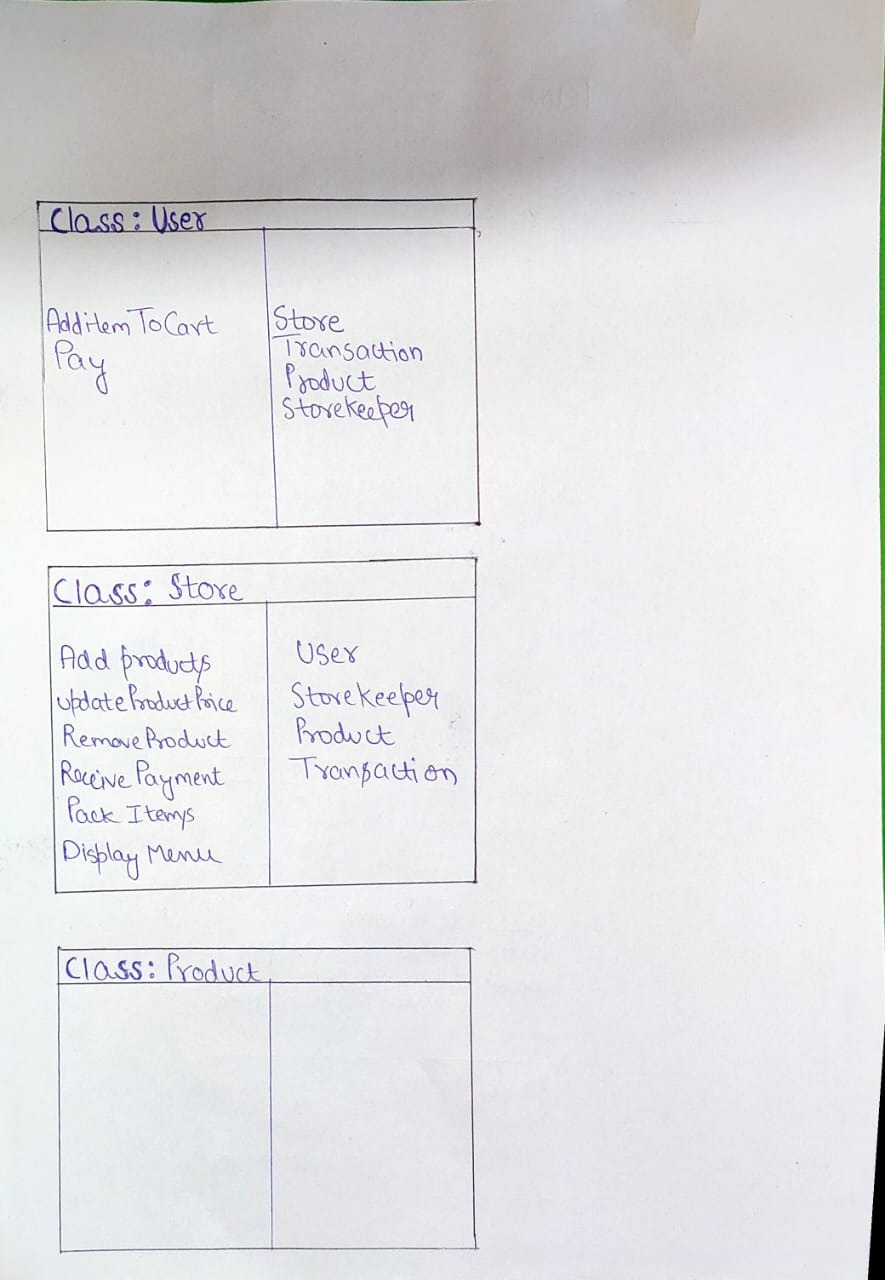 Class: User
AdditemToCart
Pay
Store
Transaction
Product
Storekeeper
Class: Store
Add products
UpdateProductPrice
RemoveProduct
Receive Payment
Pack Items
Display Menu
User
Storekeeper
Product
Transaction
Class: Product